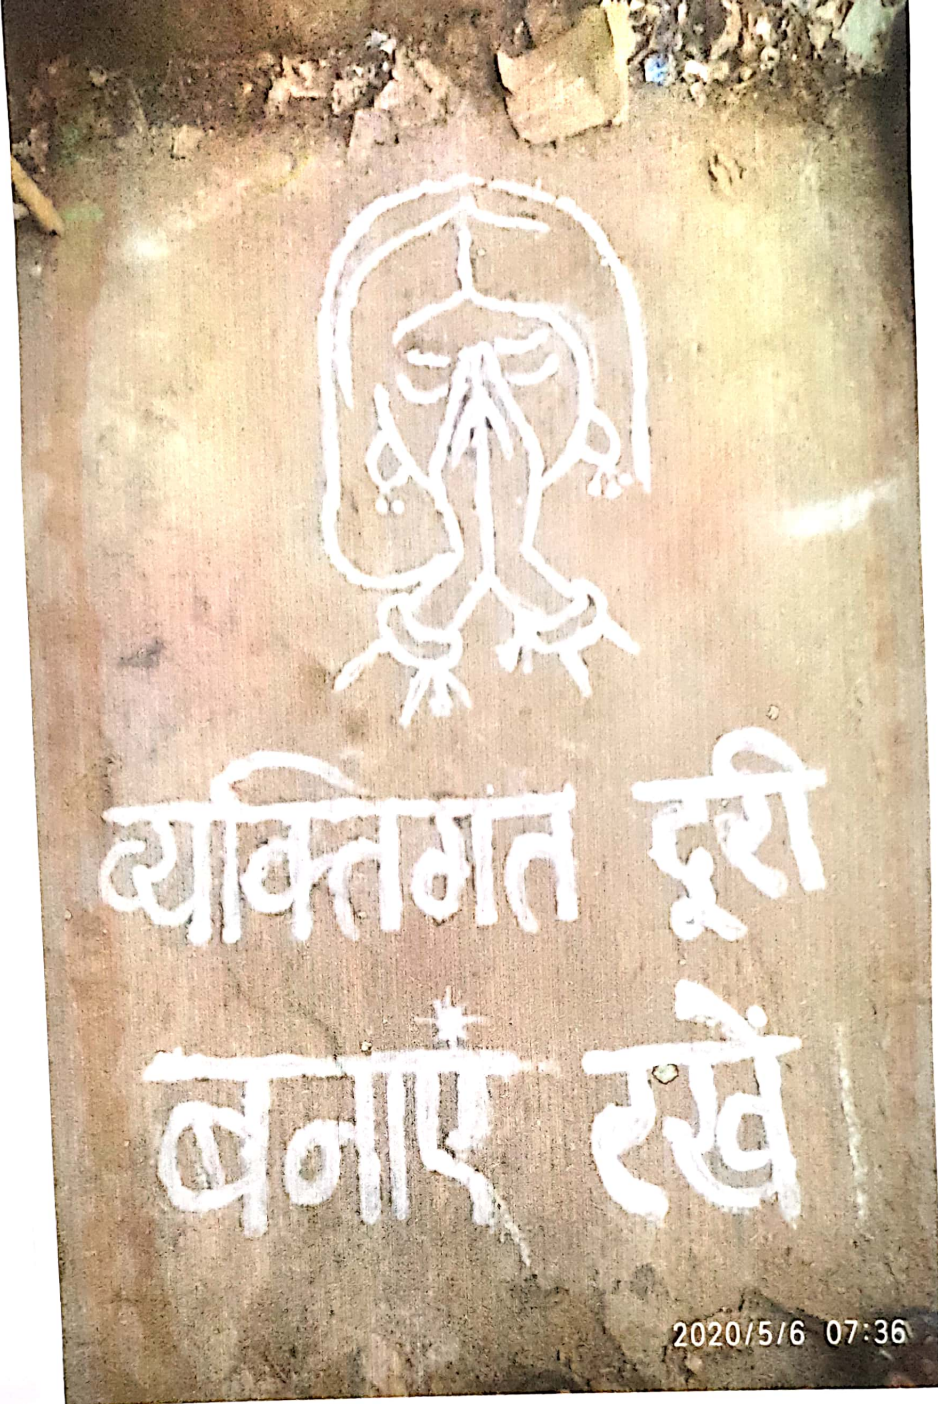 व्यक्तिगत दूरी
बनाएं रखें
2020/5/6 07:36